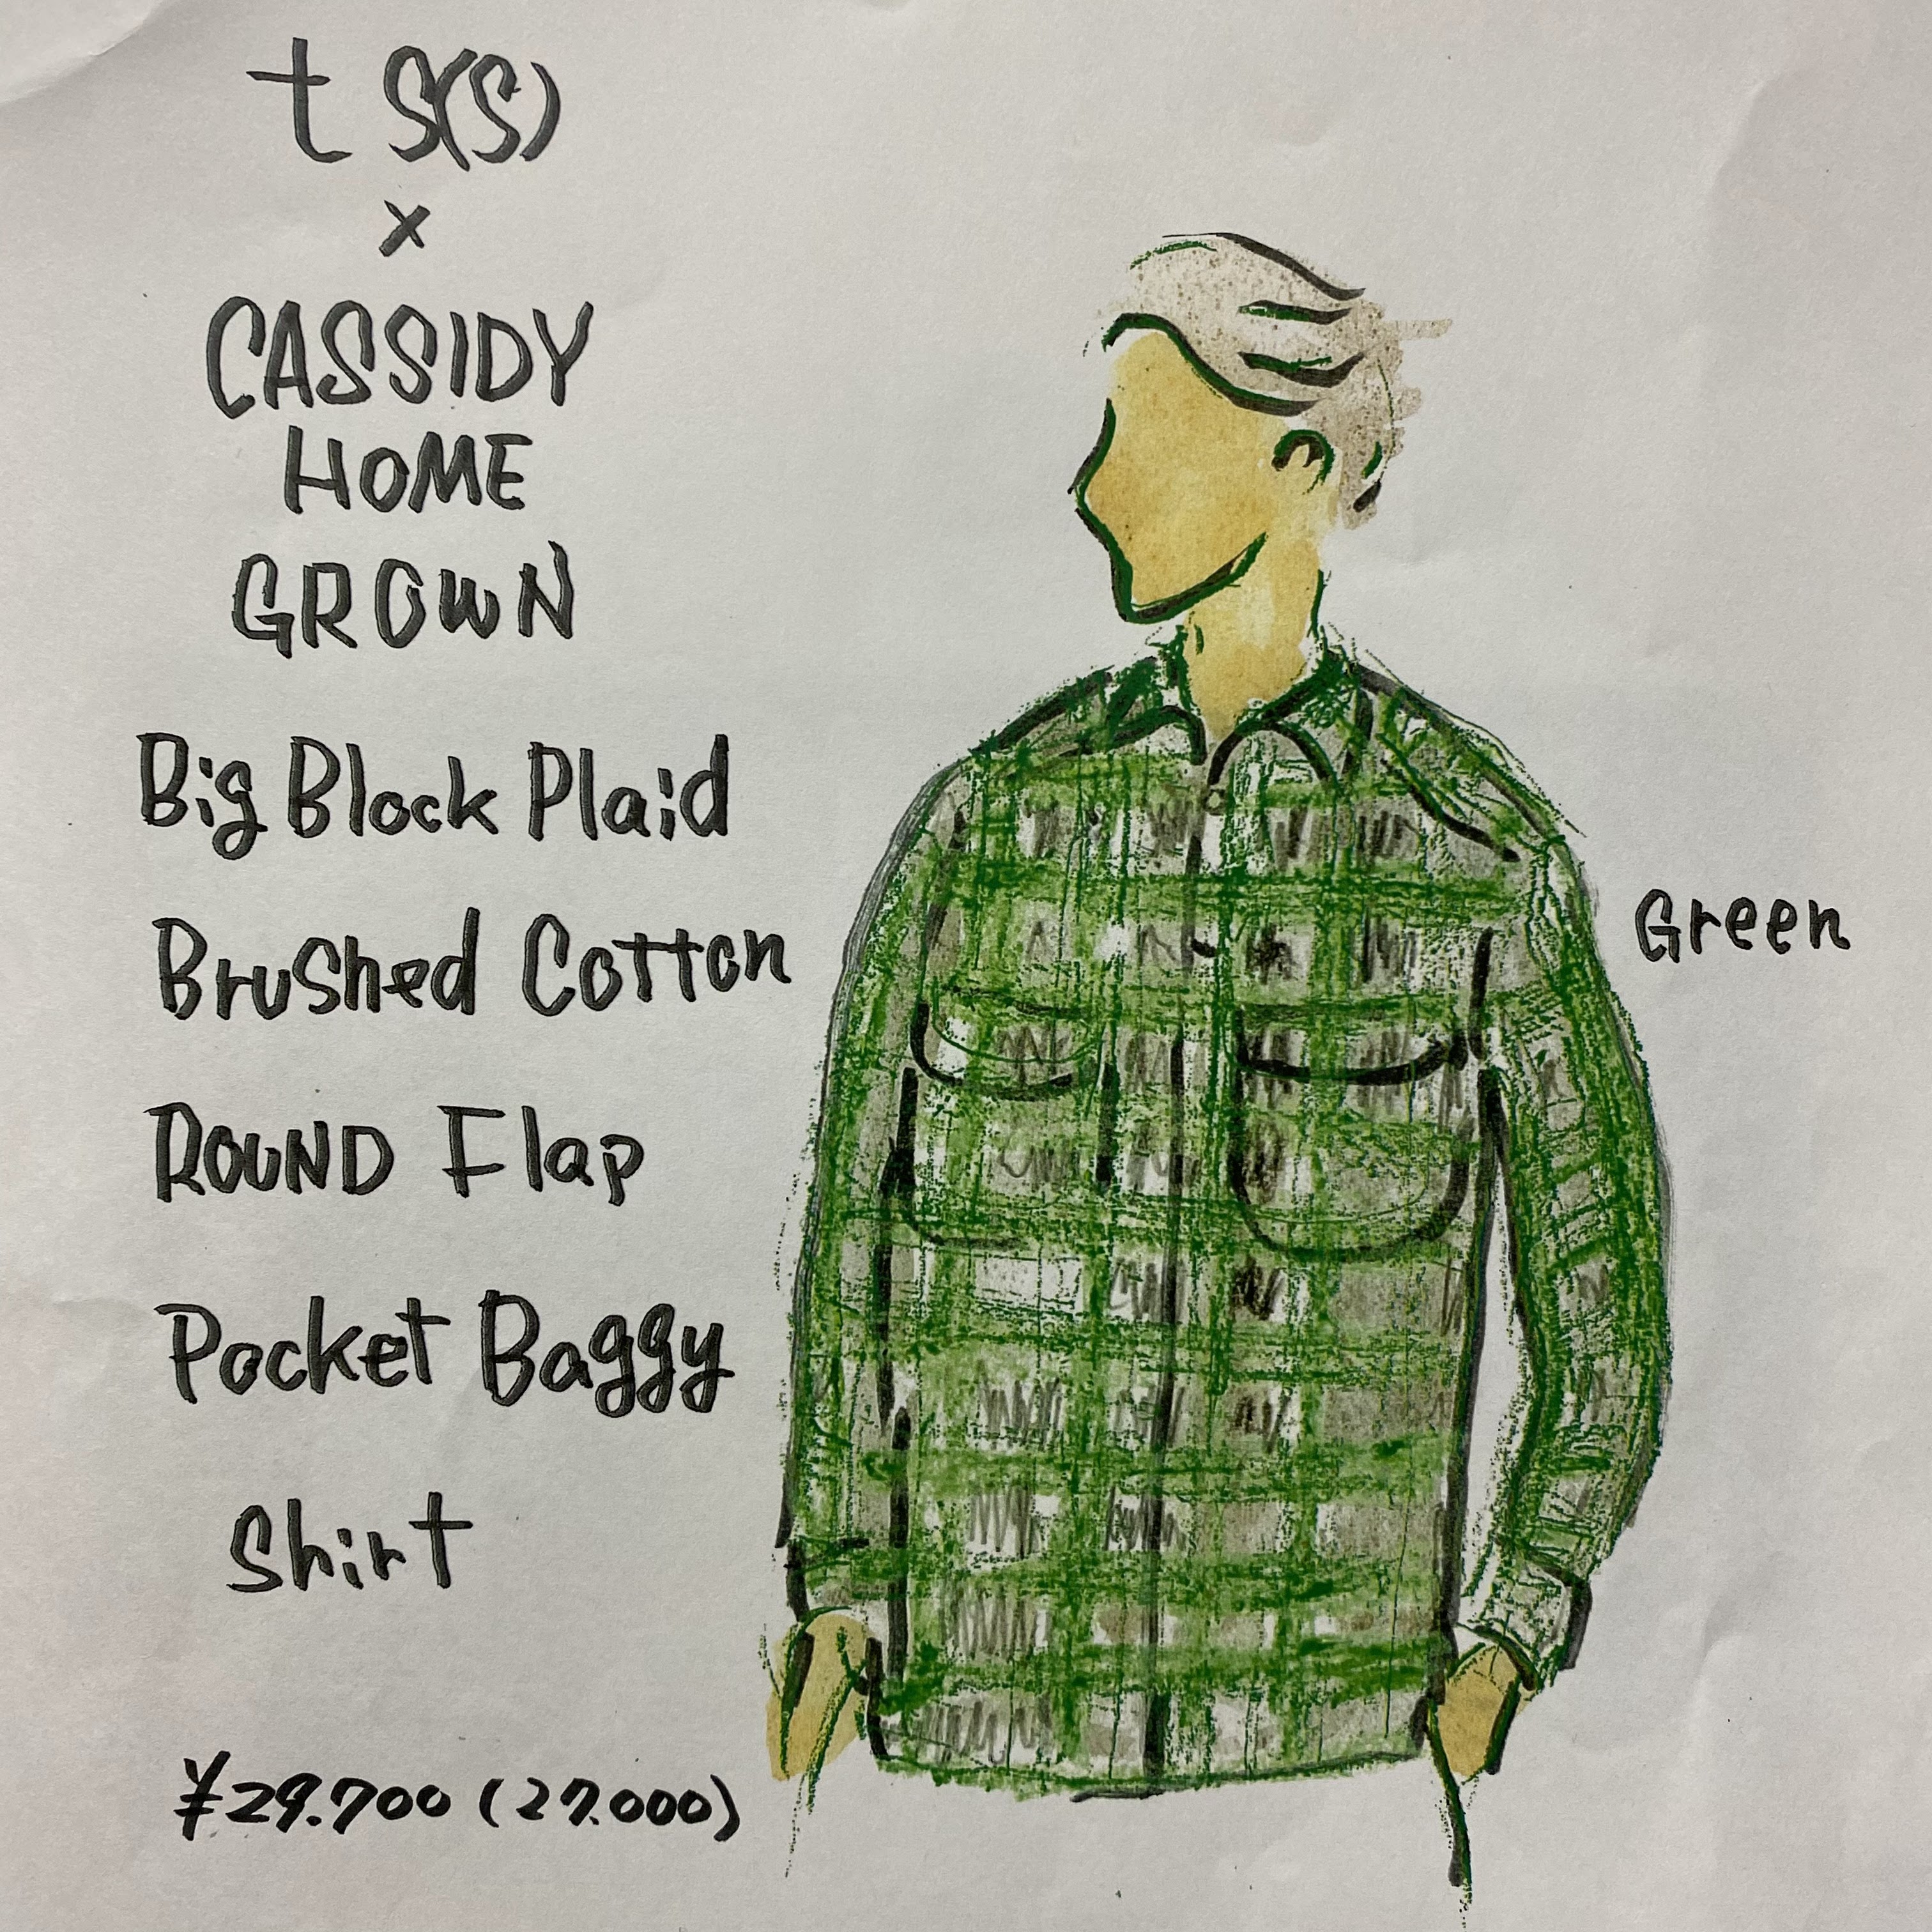 t s(s)
×
CASSIDY
HOME
GROWN
Big Block Plaid
Brushed Cotton
ROUND Flap
Pocket Baggy
Shirt
¥29.700 (27.000)
Green